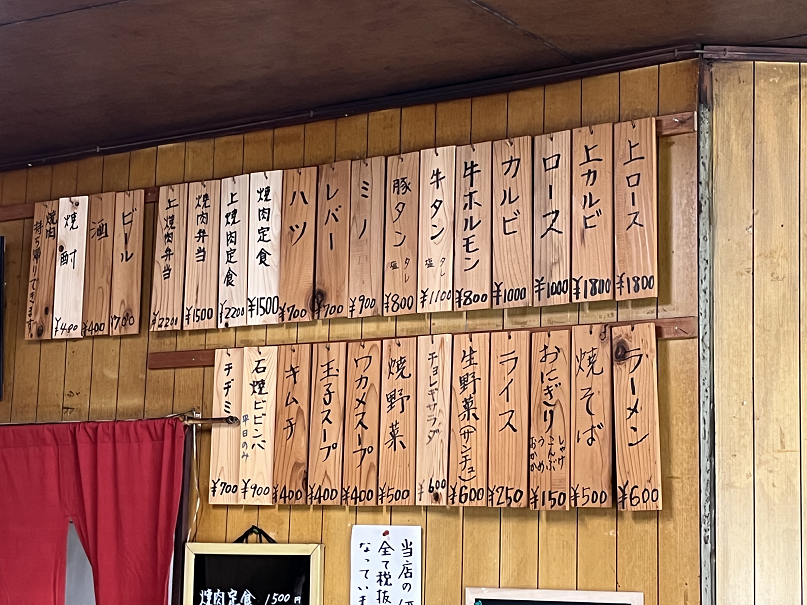 上ロース
¥1800
上カルビ
¥1800
ロース
¥1000
カルビ
¥1000
牛ホルモン
¥800
牛タン
タレ
塩
¥1100
豚タン
タレ
塩
¥800
ミノ
¥900
レバー
¥700
ハツ
¥700
焼肉定食
¥1500
上焼肉定食
¥2200
焼肉弁当
¥1500
上焼肉弁当
¥2200
ビール
¥700
酒
¥400
焼酎
¥400
焼肉
持ち帰りできます。
ラーメン
¥600
焼そば
¥500
おにぎり
しゃけ
こんぶ
うめ
おかか
¥150
ライス
¥250
生野菜(サンチュ)
¥600
チョレギサラダ
¥600
焼野菜
¥500
ワカメスープ
¥400
玉子スープ
¥400
キムチ
¥400
石焼ビビンバ
平日のみ
¥900
チヂミ
¥700
当店の
全て税抜
なってい
焼肉定食 1500円